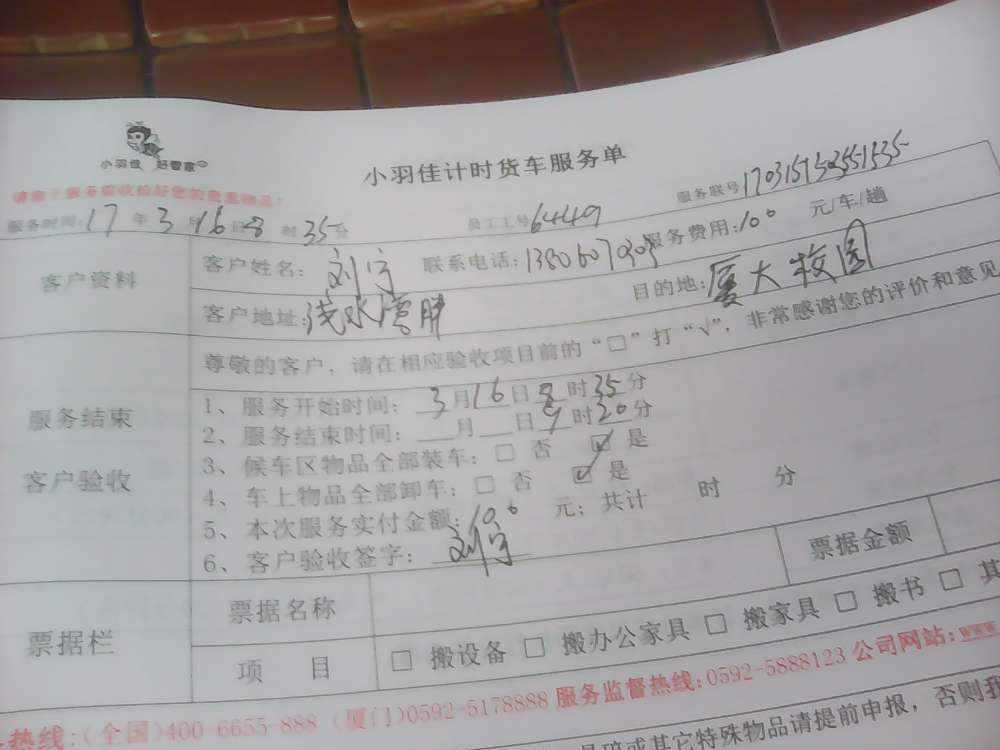 小羽佳 好管家
小羽佳计时货车服务单
请需于服务前收检好您的贵重物品!
服务联号 170315152551535
服务时间: 17 年 3 月 16 日 8 时 35 分 员工工号 6449
客户资料 客户姓名: 刘宁 联系电话: 服务费用: 100 元/车/趟
客户地址: 目的地: 厦大校园
尊敬的客户，请在相应验收项目前的“□”打“√”，非常感谢您的评价和意见
服务结束
客户验收
1、服务开始时间: 3月16日8时35分
2、服务结束时间: 月 日9时20分
3、候车区物品全部装车: □ 否 ☑ 是
4、车上物品全部卸车: □ 否 ☑ 是
5、本次服务实付金额: 100 元; 共计 时 分
6、客户验收签字: 刘宁
票据栏 票据名称 票据金额
项 目 □ 搬设备 □ 搬办公家具 □ 搬家具 □ 搬书 □ 其
热线:(全国)400-6655-888 (厦门)0592-5178888 服务监督热线:0592-5888123 公司网站: www
或其它特殊物品请提前申报，否则我